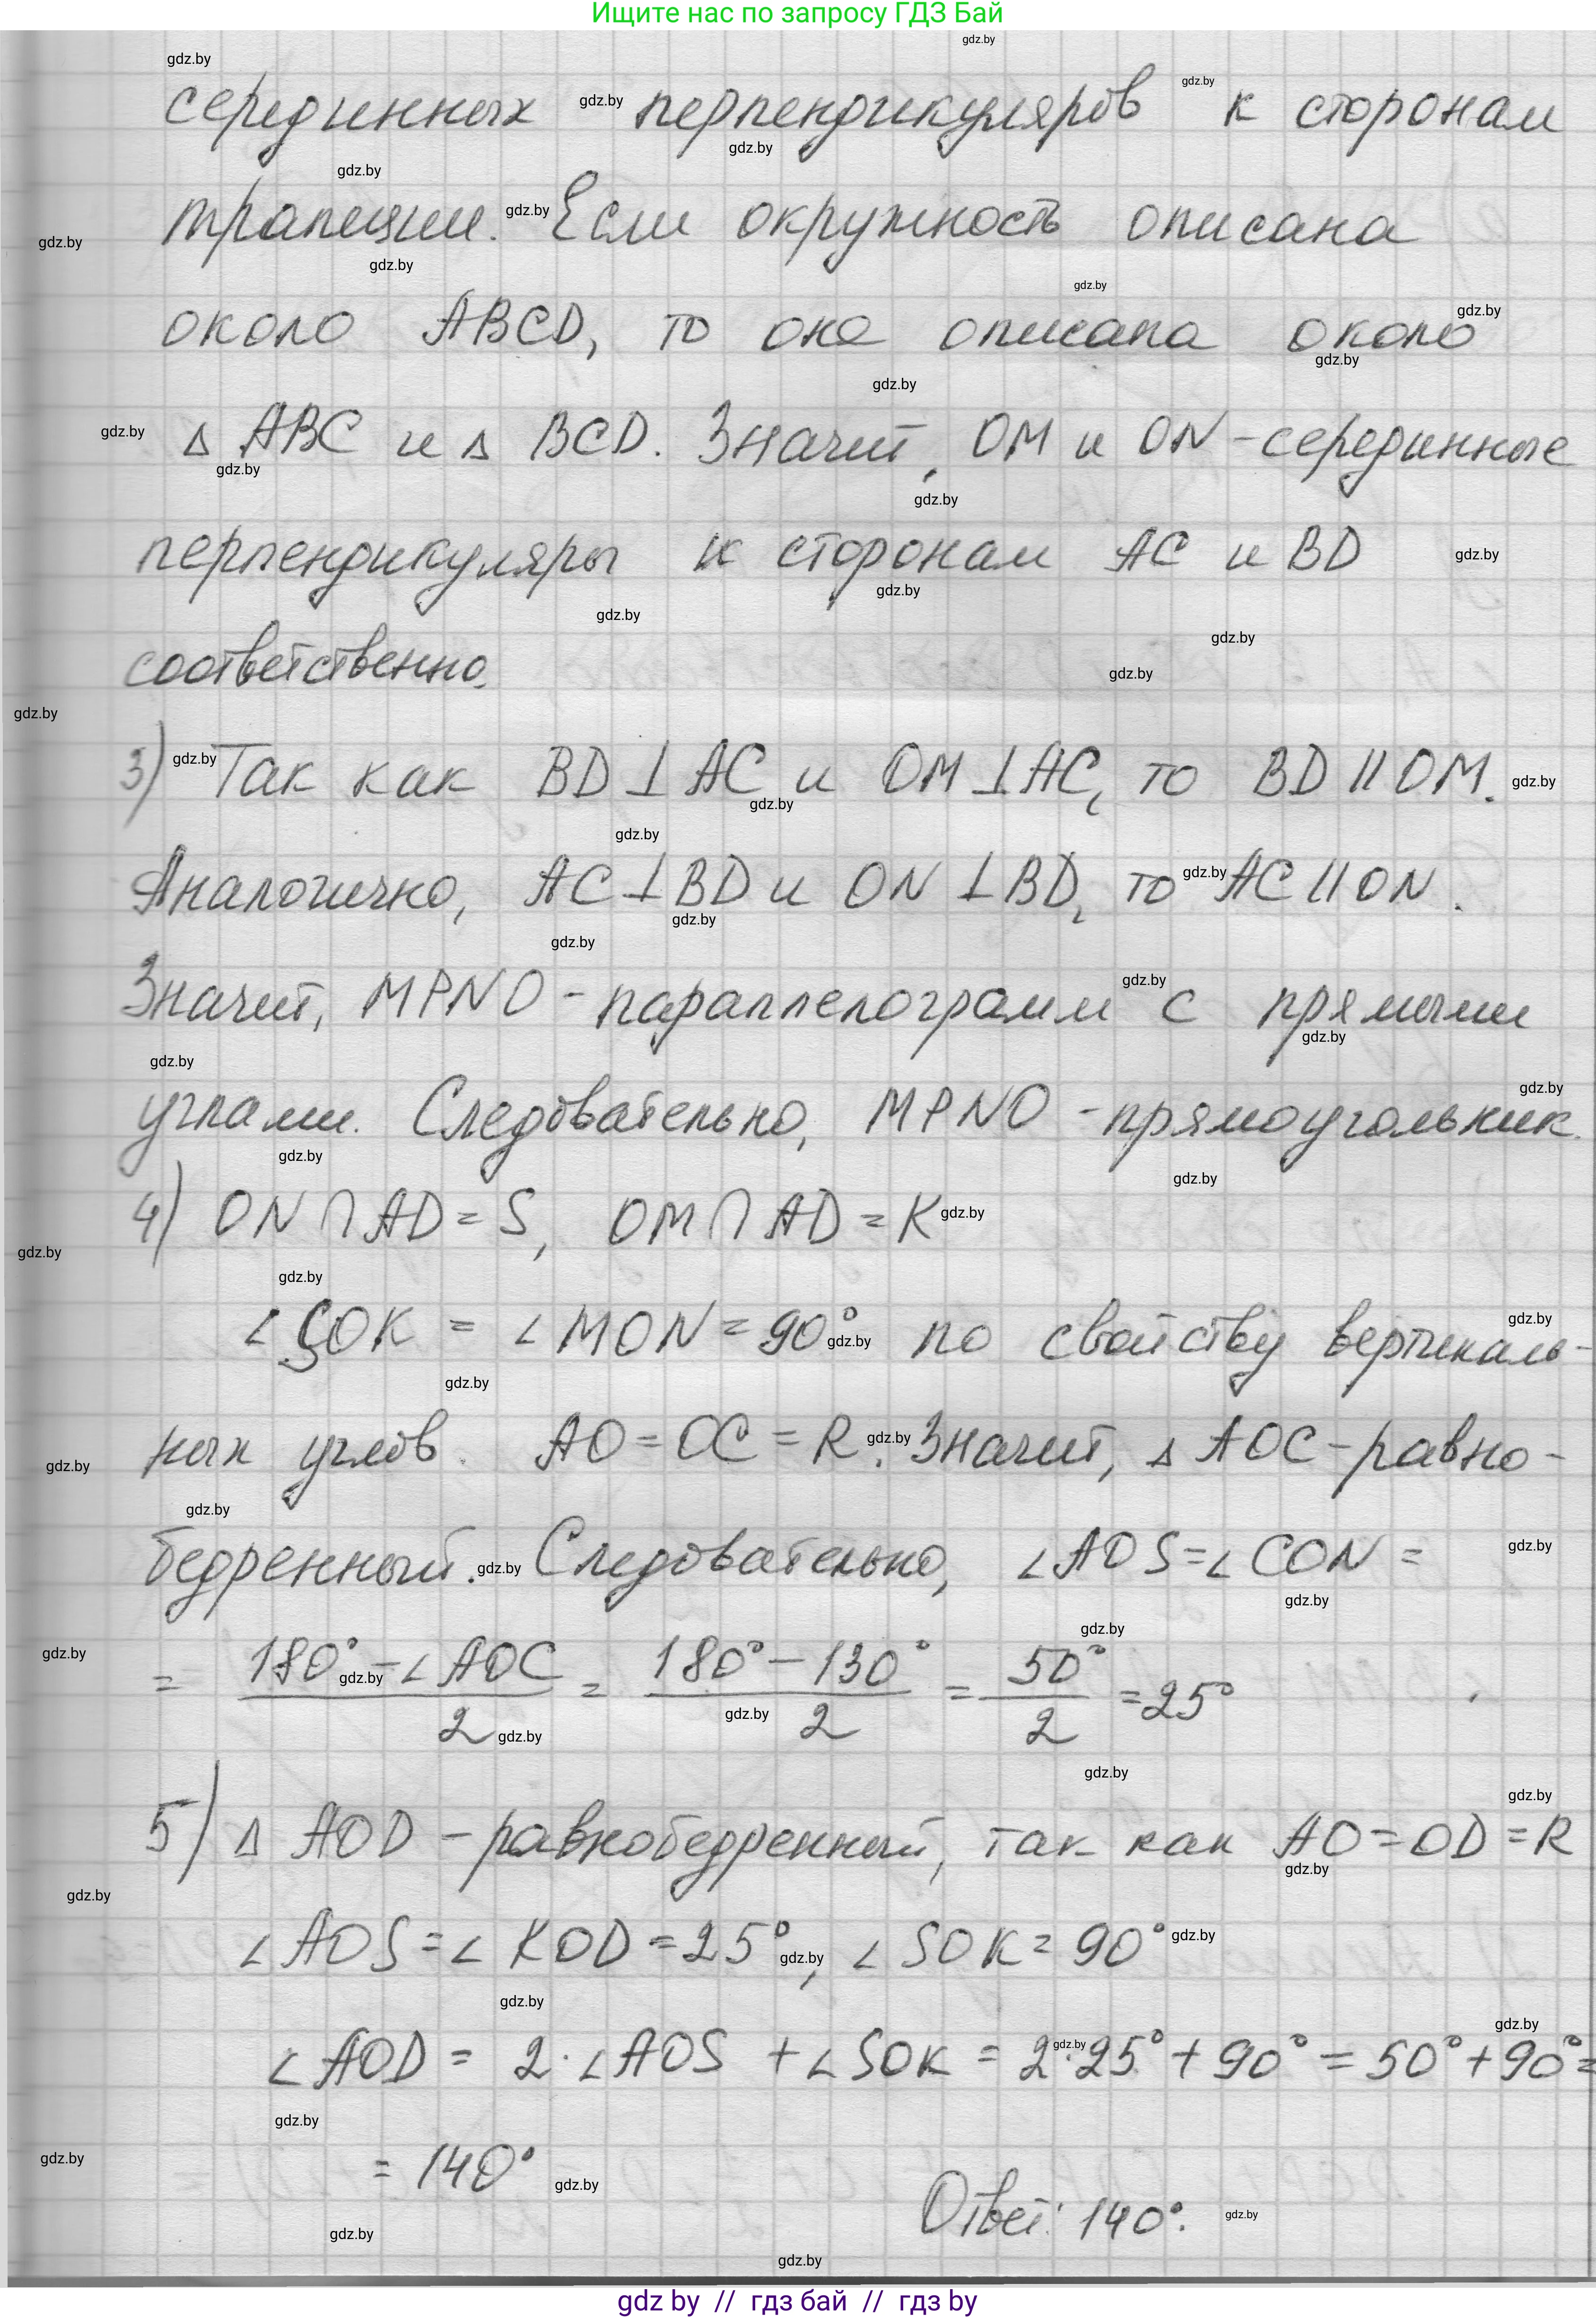 Ищите нас по запросу ГДЗ Бай
серединных перпендикуляров к сторонам
трапеции. Если окружность описана
около ABCD, то она описана около
△ ABC и △ BCD. Значит, OM и ON - серединные
перпендикуляры к сторонам AC и BD
соответственно.
3) Так как BD ⊥ AC и OM ⊥ AC, то BD || OM.
Аналогично, AC ⊥ BD и ON ⊥ BD, то AC || ON.
Значит, MPNO - параллелограмм с прямыми
углами. Следовательно, MPNO - прямоугольник.
4) ON ∩ AD = S, OM ∩ AD = K
∠SOK = ∠MON = 90° по свойству вертикаль-
ных углов. AO = OC = R. Значит, △ AOC - равно-
бедренный. Следовательно, ∠AOS = ∠CON =
= (180° - ∠AOC)/2 = (180° - 130°)/2 = 50°/2 = 25°
5) △ AOD - равнобедренный, так как AO = OD = R
∠AOS = ∠KOD = 25°, ∠SOK = 90°
∠AOD = 2·∠AOS + ∠SOK = 2·25° + 90° = 50° + 90° =
= 140°
Ответ: 140°.
gdz by // гдз бай // гдз by